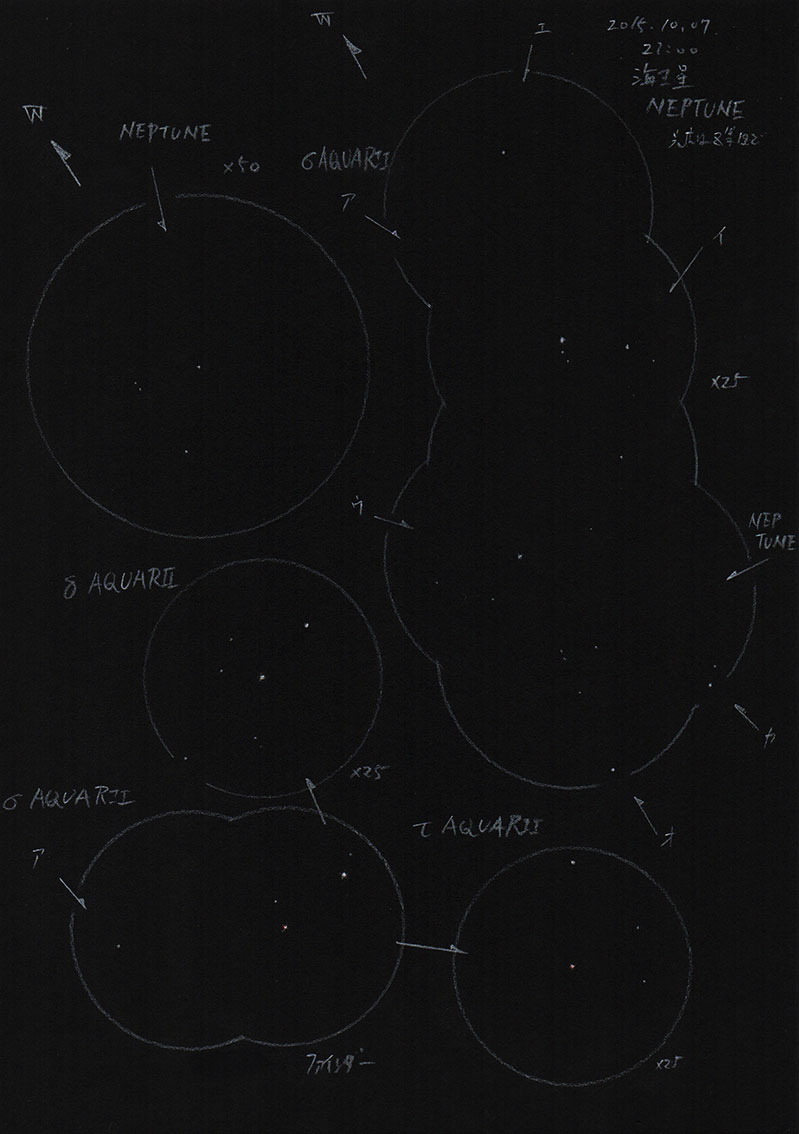 W
W
エ
2015.10.07
21:00
海王星
NEPTUNE
NEPTUNE
×50
σAQUARII
ア
イ
×25
ウ
NEP
TUNE
δ AQUARII
×25
カ
オ
σ AQUARII
ア
τ AQUARII
ファインダー
×25